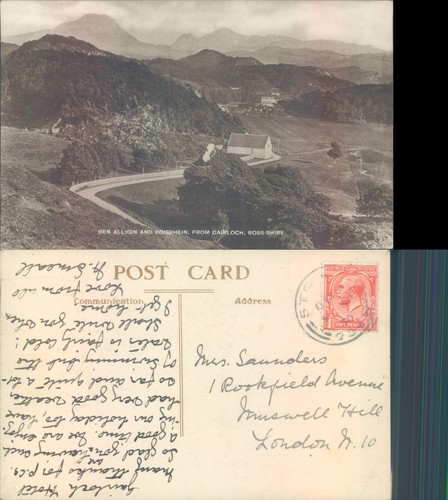 BEN ALLIGIN AND BOISBHEIN, FROM GAIRLOCH, ROSS-SHIRE
POST CARD
Communication
Address
Gairloch Hotel
Many thanks for p.c.
So glad you are having such
a good time. We are enjoy-
ing our holiday too, have
had very good weather
so far and quite a lot
of swimming but the
water is fairly cold!
Shall write you when
I get home
Love from all
Mrs. Saunders
1 Rookfield Avenue
Muswell Hill
London N. 10